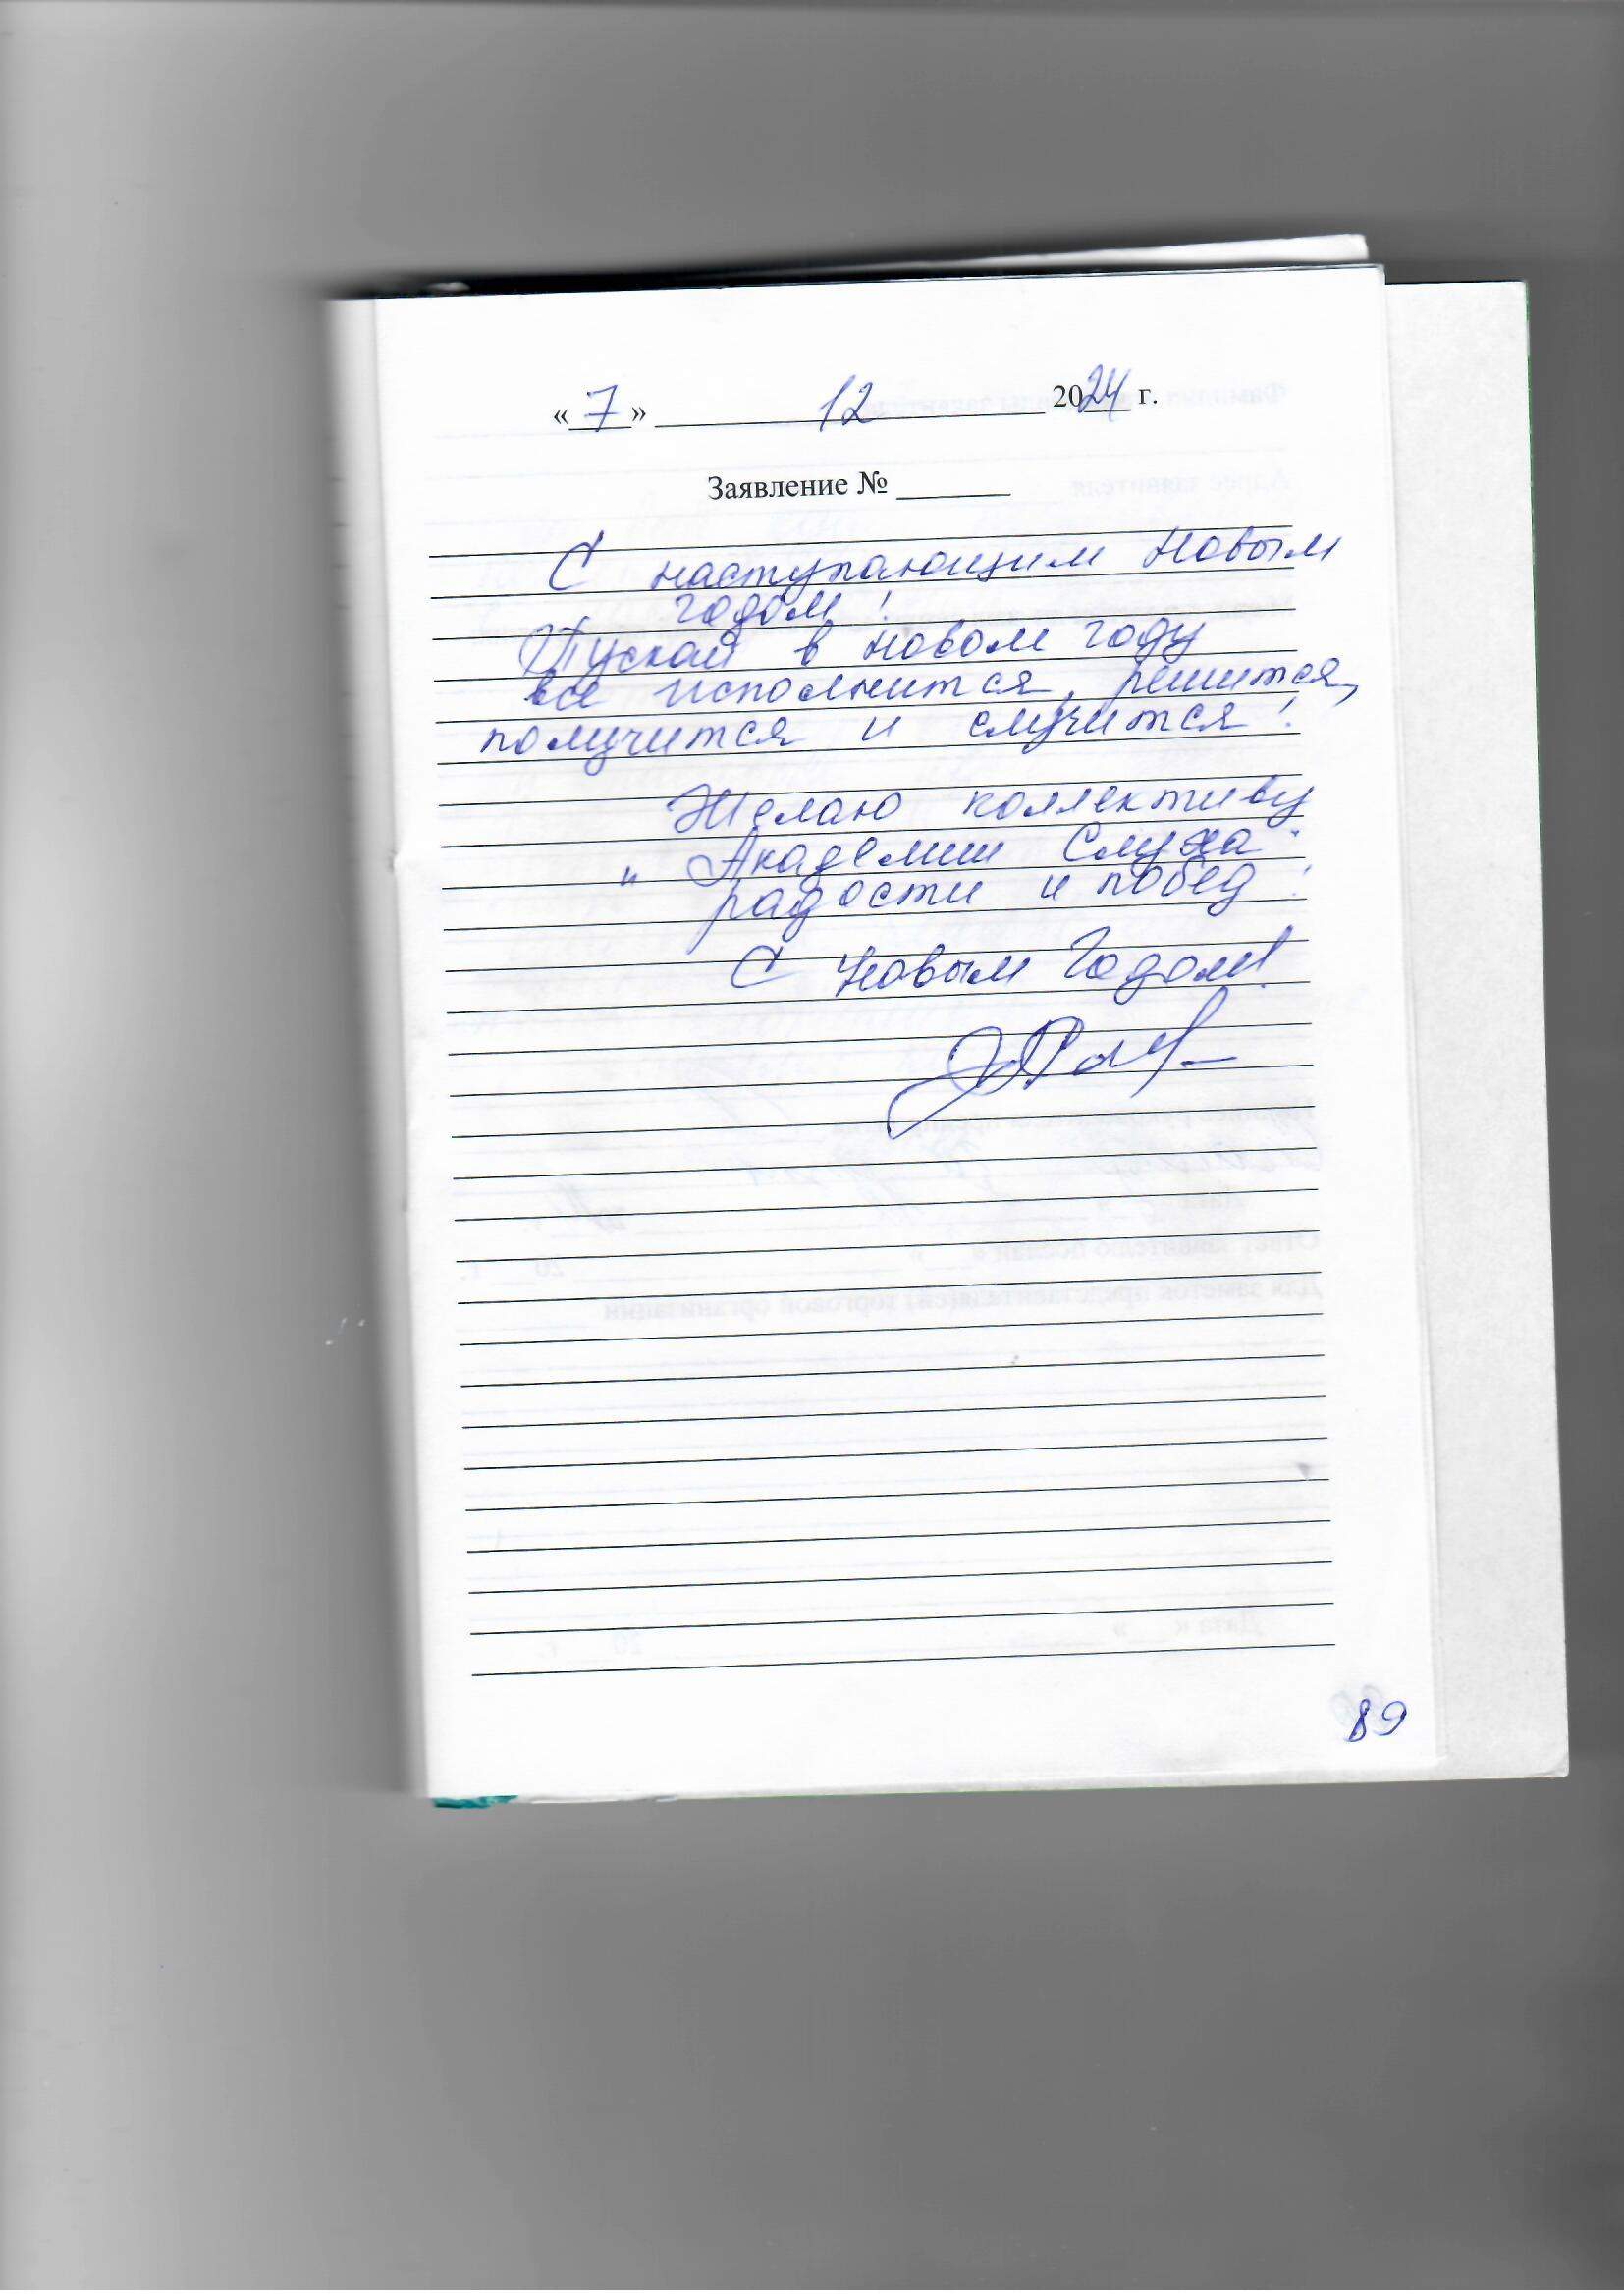 «7» 12 2024 г.
Заявление № ______
С наступающим Новым
годом!
Пускай в новом году
все исполнится, решится,
получится и случится!
Желаю коллективу
"Академии Слуха"
радости и побед!
С Новым Годом!
89